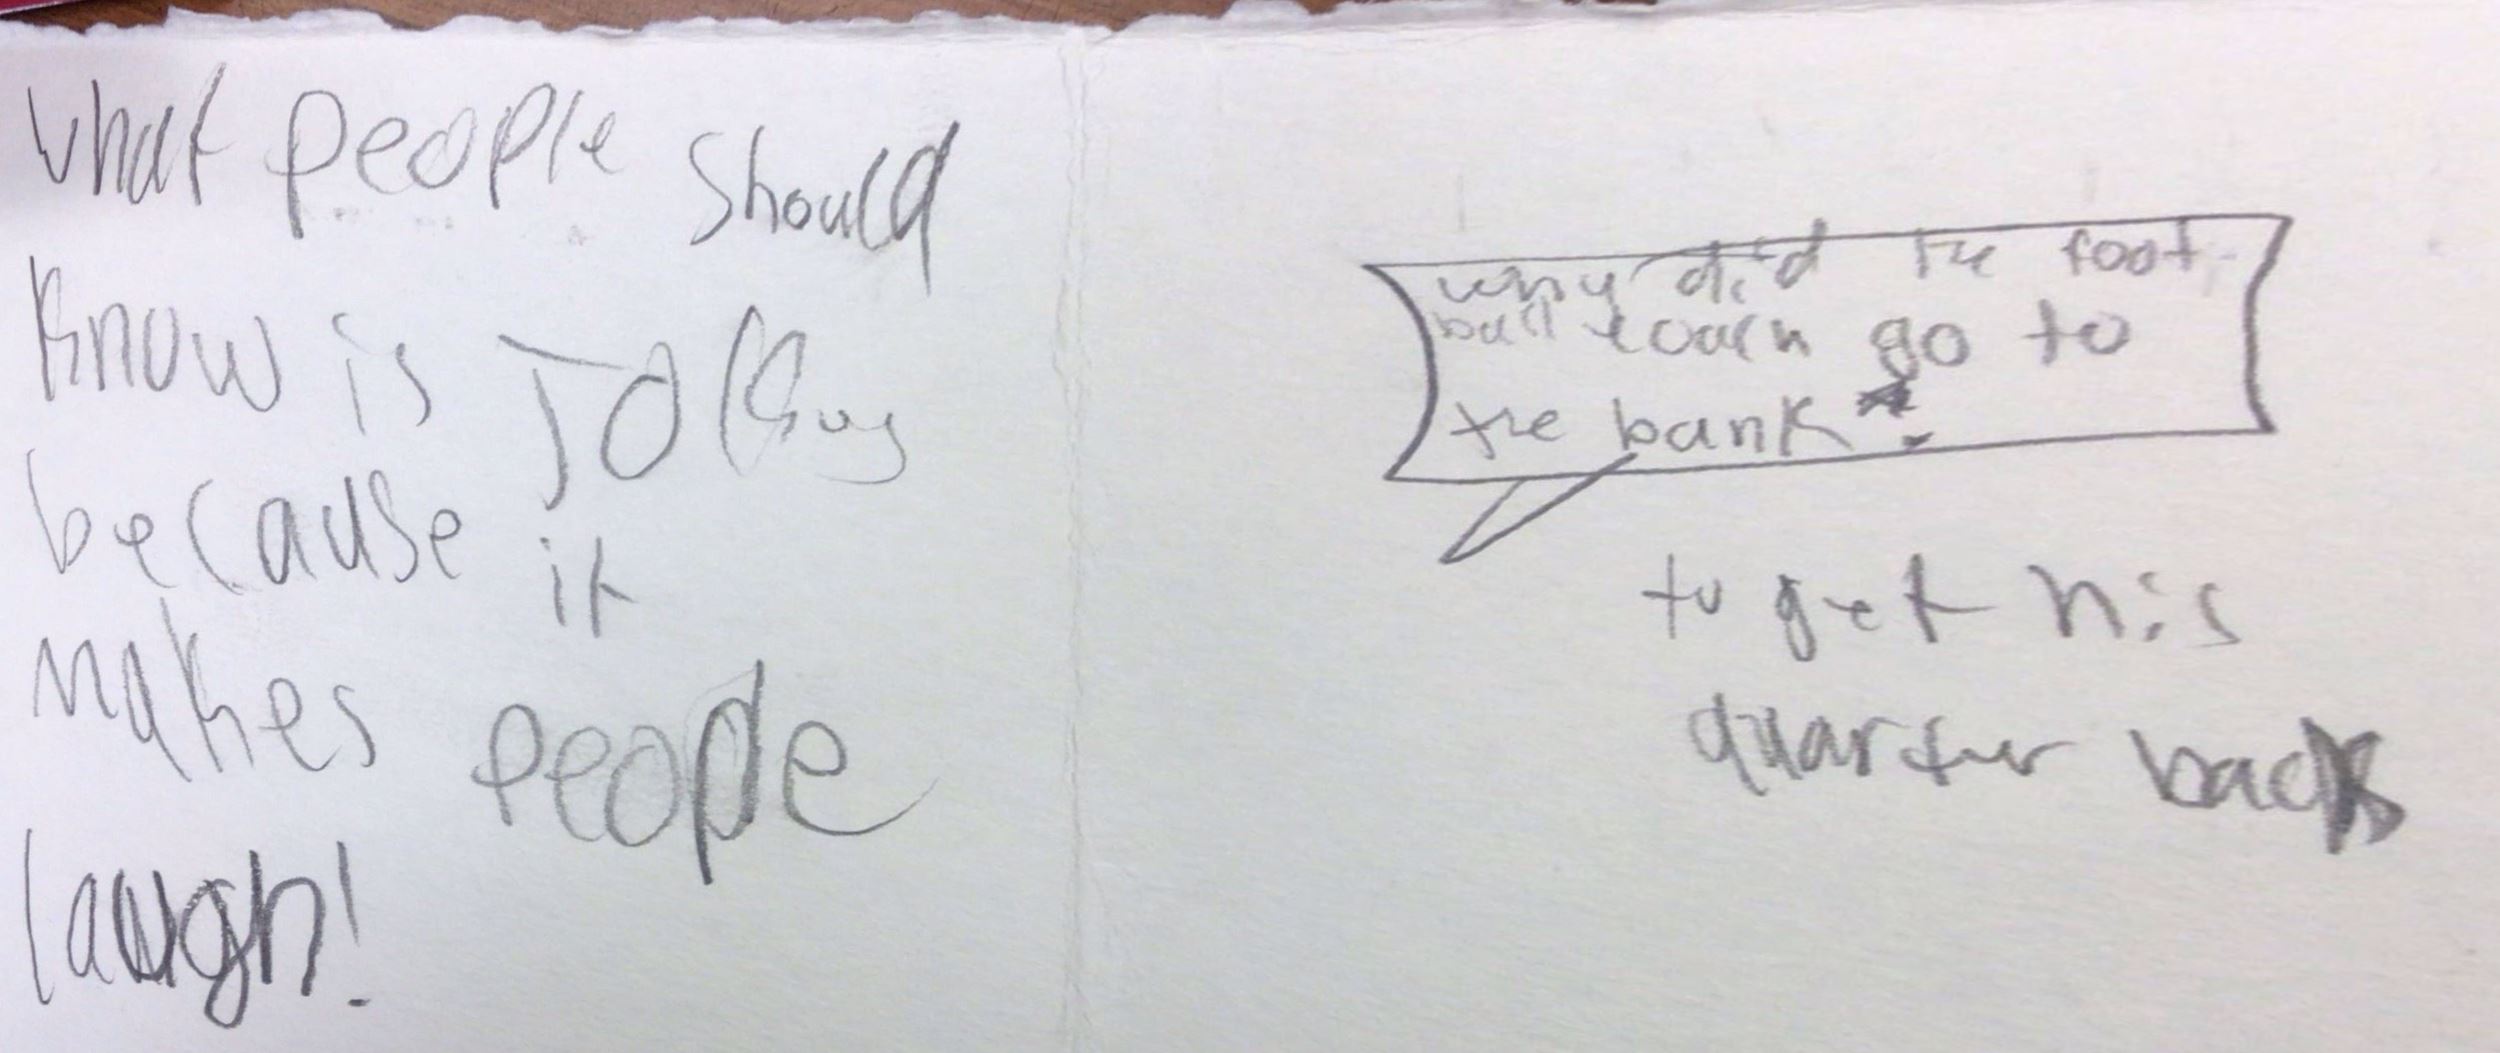 What people should
know is JOKing
because it
makes people
laugh!
why did the foot
ball coach go to
the bank?
to get his
quarter back